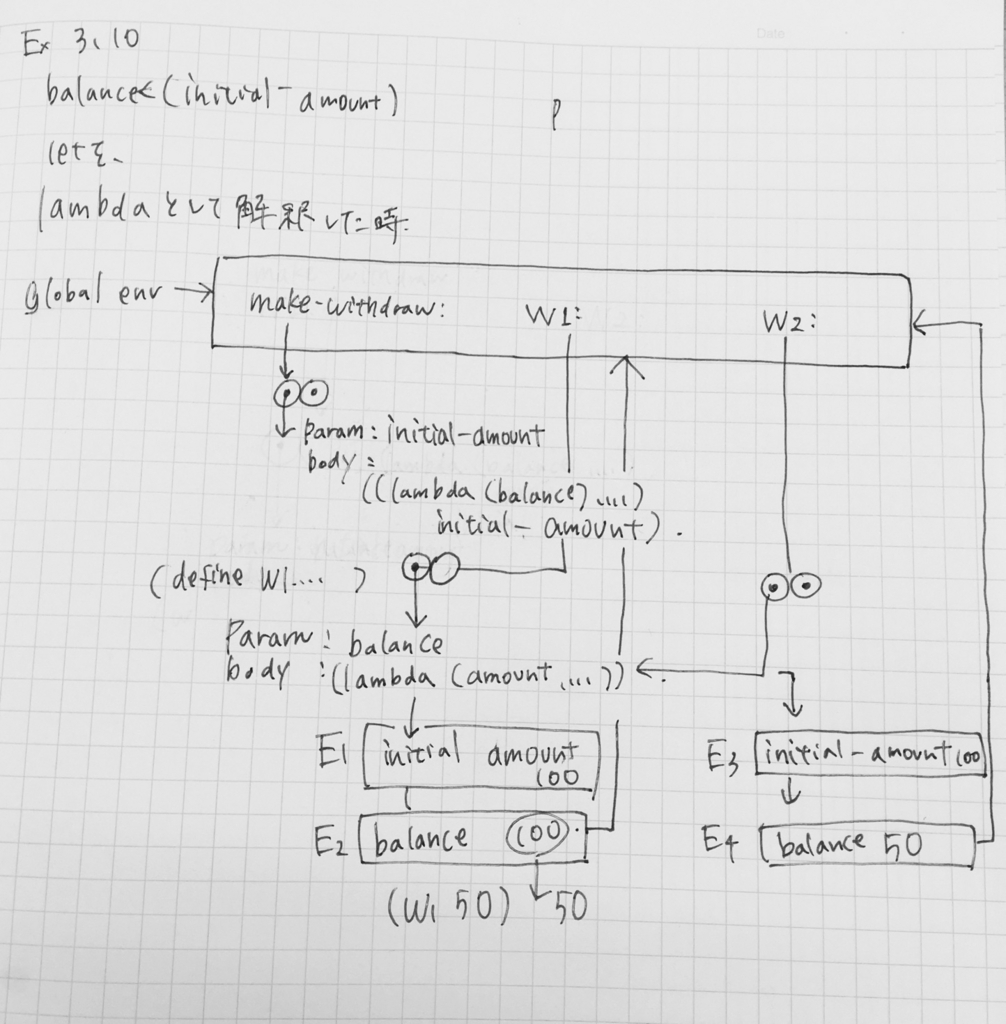 Ex 3.10
balance<(initial-amount)
letを、
lambdaとして解釈した時.
global env
make-withdraw:
W1:
W2:
param: initial-amount
body:
(((lambda (balance) ....)
initial-amount).
(define W1.... )
Param: balance
body :((lambda (amount ....))
E1
initial amount
100
E2
balance 100
(W1 50)
50
E3
initial-amount 100
E4
balance 50